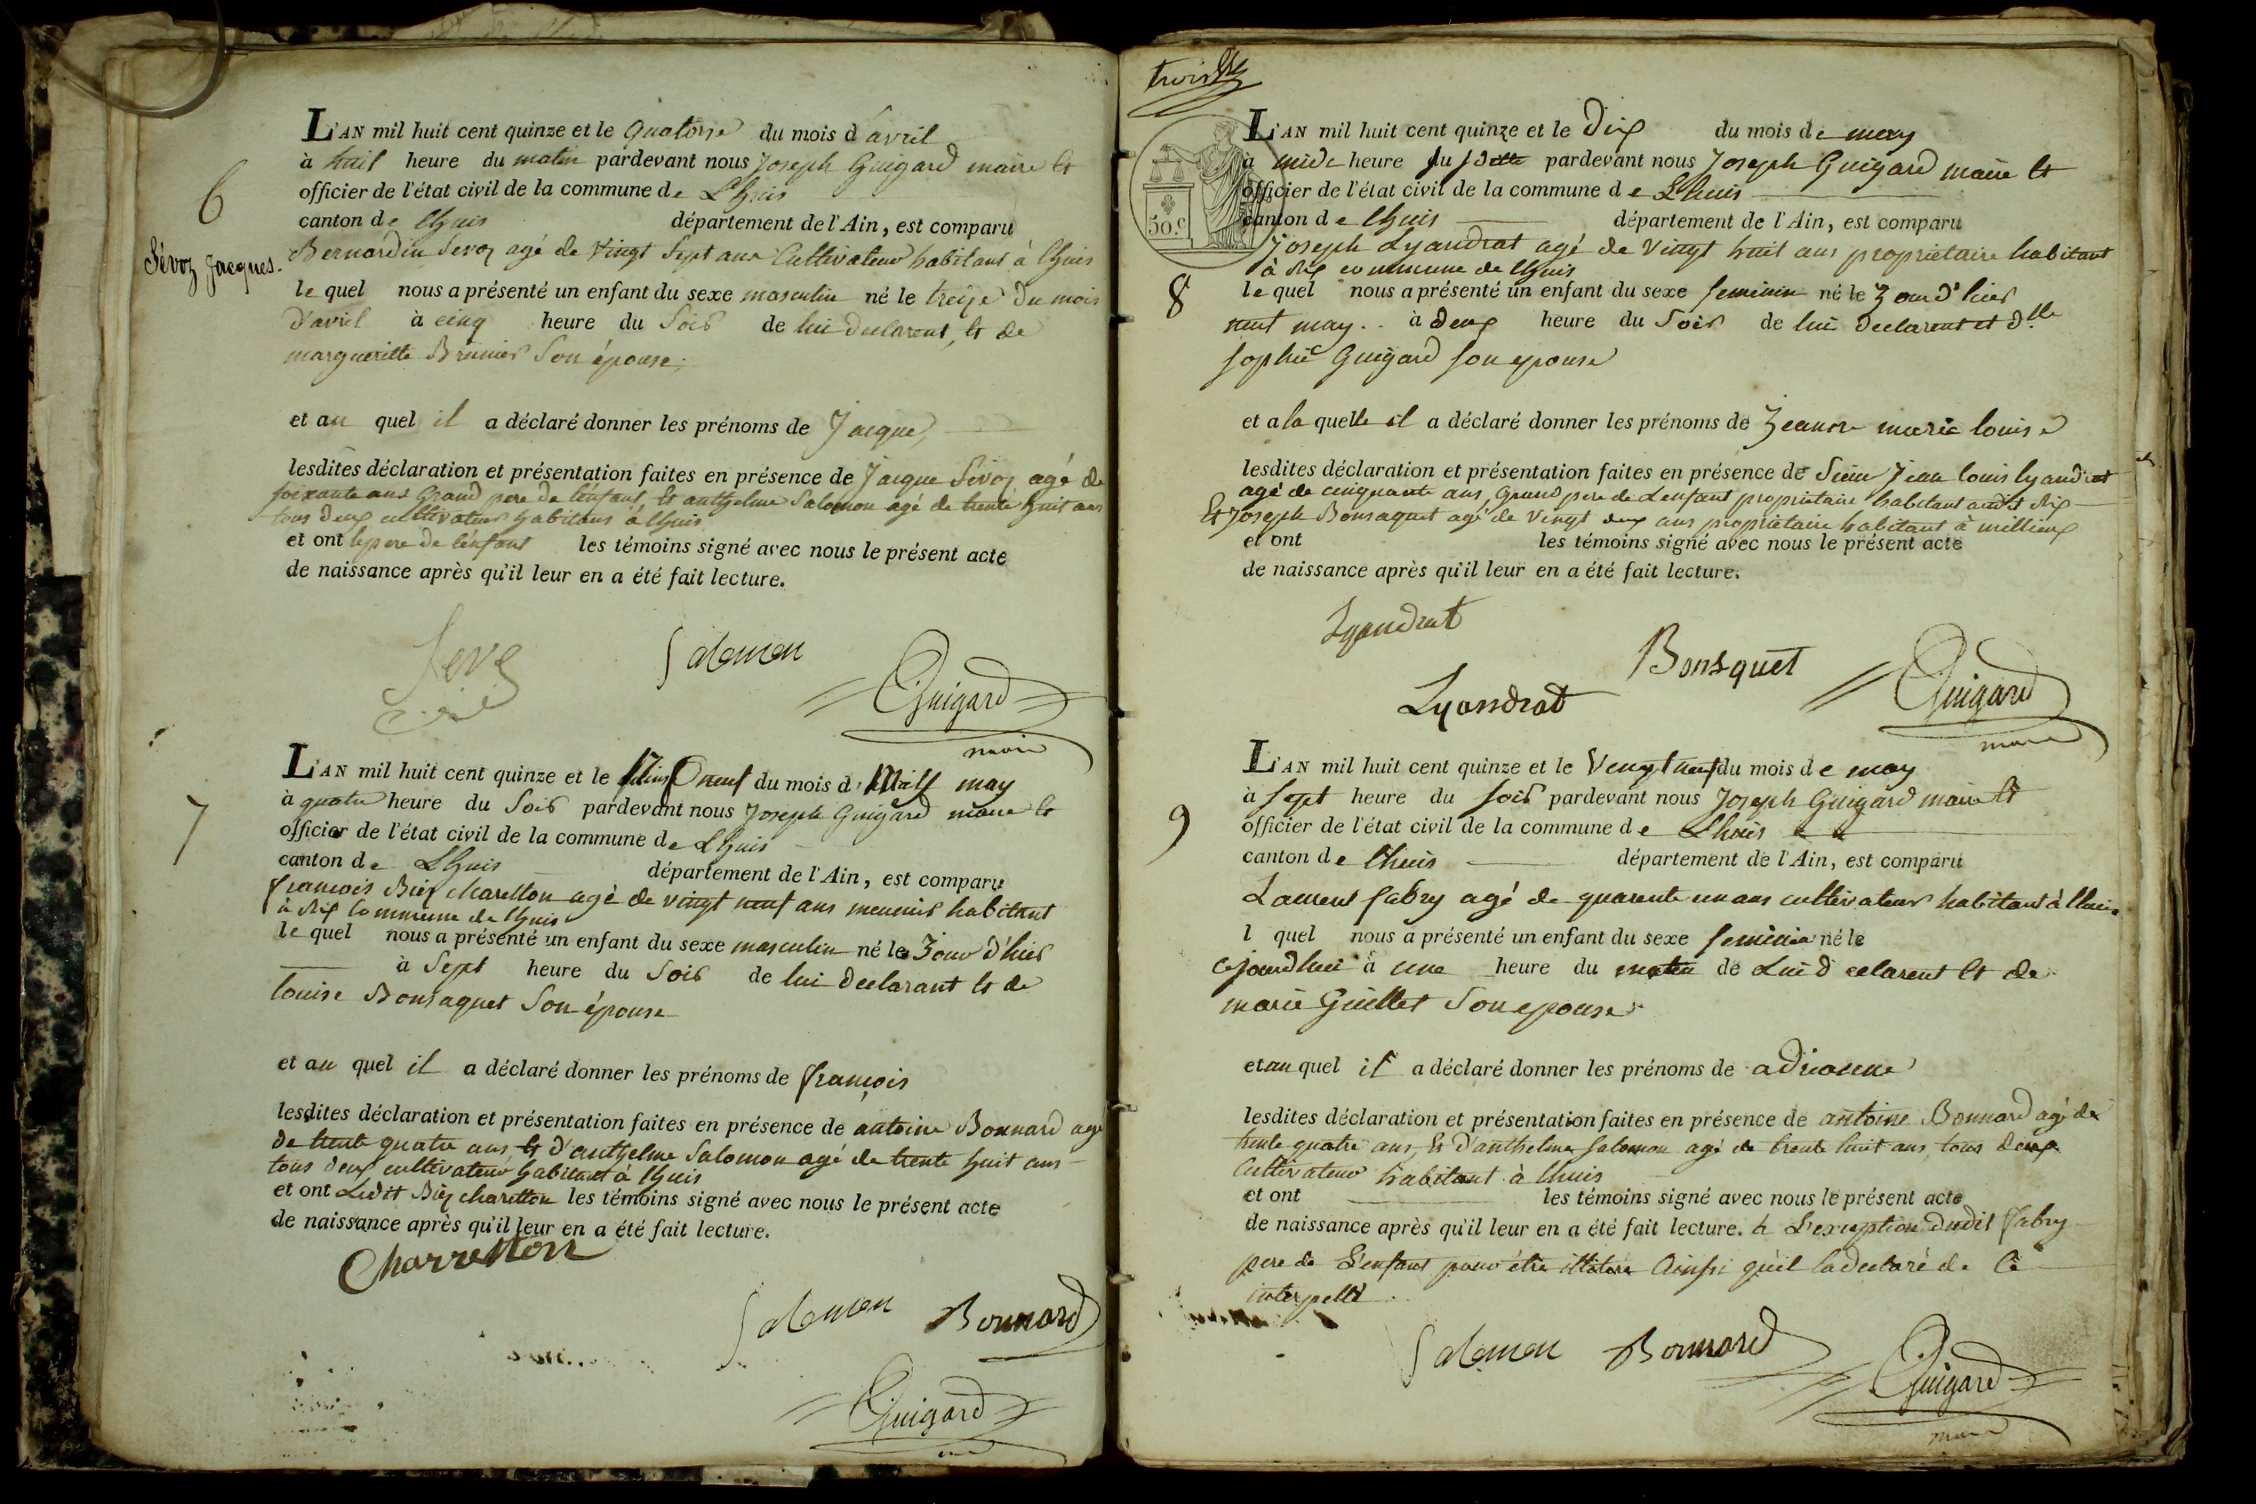 6
Sévoz Jacques.
L'AN mil huit cent quinze et le Quatorze du mois d'avril
à huit heure du matin pardevant nous Joseph Guigard maire et
officier de l'état civil de la commune de Lhuis
canton de Lhuis département de l'Ain, est comparu
Bernardin Sevoz agé de vingt sept ans Cultivateur habitant à lhuis
le quel nous a présenté un enfant du sexe masculin né le treize du mois
d'avril à cinq heure du Soir de lui declarant, et de
margueritte Brunier Son épouse.
et au quel il a déclaré donner les prénoms de Jacque
lesdites déclaration et présentation faites en présence de Jacque Sevoz agé de
soixante ans Grand pere de l'enfant et anthelme Salomon agé de trente huit ans
tous deux cultivateurs habitans à lhuis
et ont le pere de l'enfant les témoins signé avec nous le présent acte
de naissance après qu'il leur en a été fait lecture.
Salomon
Guigard
maire
7
L'AN mil huit cent quinze et le neuf du mois d may
à quatre heure du Soir pardevant nous Joseph Guigard maire et
officier de l'état civil de la commune de Lhuis
canton de Lhuis département de l'Ain, est comparu
francois Biez charetton agé de vingt neuf ans meunier habitant
à Rix Commune de lhuis
le quel nous a présenté un enfant du sexe masculin né le Jour d'hier
à Sept heure du Soir de lui declarant et de
louise Bonsaquet Son épouse
et au quel il a déclaré donner les prénoms de françois
lesdites déclaration et présentation faites en présence de antoine Bonnard agé
de trente quatre ans, et d'anthelme Salomon agé de trente huit ans
tous deux cultivateur habitant à lhuis
et ont Ledit Biez charetton les témoins signé avec nous le présent acte
de naissance après qu'il leur en a été fait lecture.
Charretton
Salomon Bonnard
Guigard
trois
50.c
8
L'AN mil huit cent quinze et le Dix du mois de may
à midi heure du pardevant nous Joseph Guigard maire et
officier de l'état civil de la commune de Lhuis
canton de lhuis département de l'Ain, est comparu
Joseph Lyandrat agé de vingt huit ans propriétaire habitant
à Rix commune de lhuis
le quel nous a présenté un enfant du sexe feminin né le Jour d'hier
neuf may à deux heure du Soir de lui declarent et dlle
sophie Guigard son epouse
et a la quelle il a déclaré donner les prénoms de Jeanne marie louise
lesdites déclaration et présentation faites en présence de Sieur Jean louis lyandrat
agé de cinquante ans, grand pere de L'enfant propriétaire habitant audit Rix
Et Joseph Bonsaquet agé de vingt deux ans propriétaire habitant à millieux
et ont les témoins signé avec nous le présent acte
de naissance après qu'il leur en a été fait lecture.
Lyandrat
Bonsquet
Lyandrat
Guigard
maire
9
L'AN mil huit cent quinze et le Vengt neuf du mois de may
à sept heure du soir pardevant nous Joseph Guigard maire et
officier de l'état civil de la commune de Lhuis
canton de lhuis département de l'Ain, est comparu
Laurent fabry agé de quarente un ans cultivateur habitant à lhuis
l quel nous a présenté un enfant du sexe feminin né le
cejourdhui à une heure du matin de Lui declarent et de
marie Guillet Son epouse
et au quel il a déclaré donner les prénoms de adrienne
lesdites déclaration et présentation faites en présence de antoine Bonnard agé de
trente quatre ans, et d'anthelme Salomon agé de trente huit ans, tous deux
Cultivateur habitant à lhuis
et ont les témoins signé avec nous le présent acte
de naissance après qu'il leur en a été fait lecture. à L'exception dudit fabry
pere de L'enfant pour être illiteré Ainsi qu'il la declaré de Ce
interpellé.
Salomon Bonnard
Guigard
maire